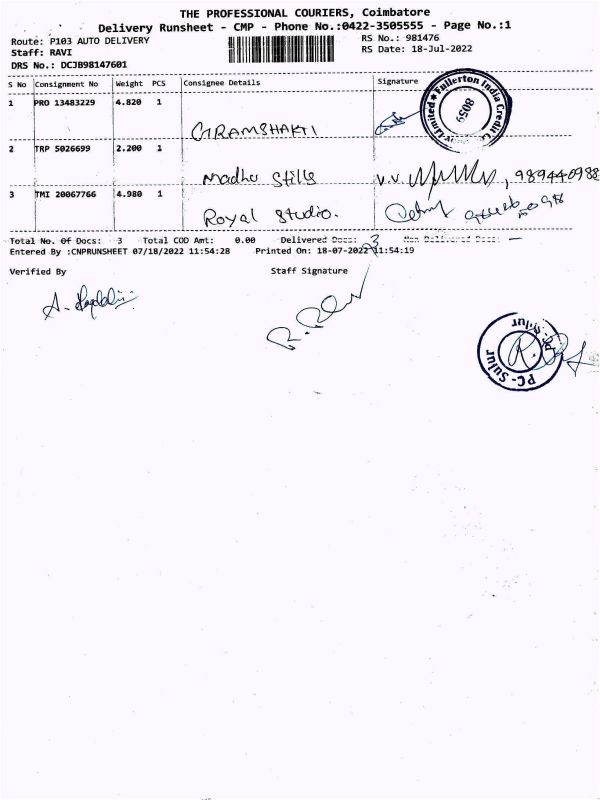 THE PROFESSIONAL COURIERS, Coimbatore
Delivery Runsheet - CMP - Phone No.:0422-3505555 - Page No.:1
Route: P103 AUTO DELIVERY
RS No.: 981476
Staff: RAVI
RS Date: 18-Jul-2022
DRS No.: DCJB98147601
S No Consignment No Weight PCS Consignee Details Signature
1 PRO 13483229 4.820 1
GRAMSHAKTI
Fullerton India Credit Co Limited
8059
2 TRP 5026699 2.200 1
Madhu Stills
V.V.
3 TMI 20067766 4.980 1
Royal Studio.
Total No. Of Docs: 3 Total COD Amt: 0.00 Delivered Docs: 3 Non Delivered Docs: —
Entered By :CNPRUNSHEET 07/18/2022 11:54:28 Printed On: 18-07-2022 11:54:19
Verified By Staff Signature
PC- Sulur